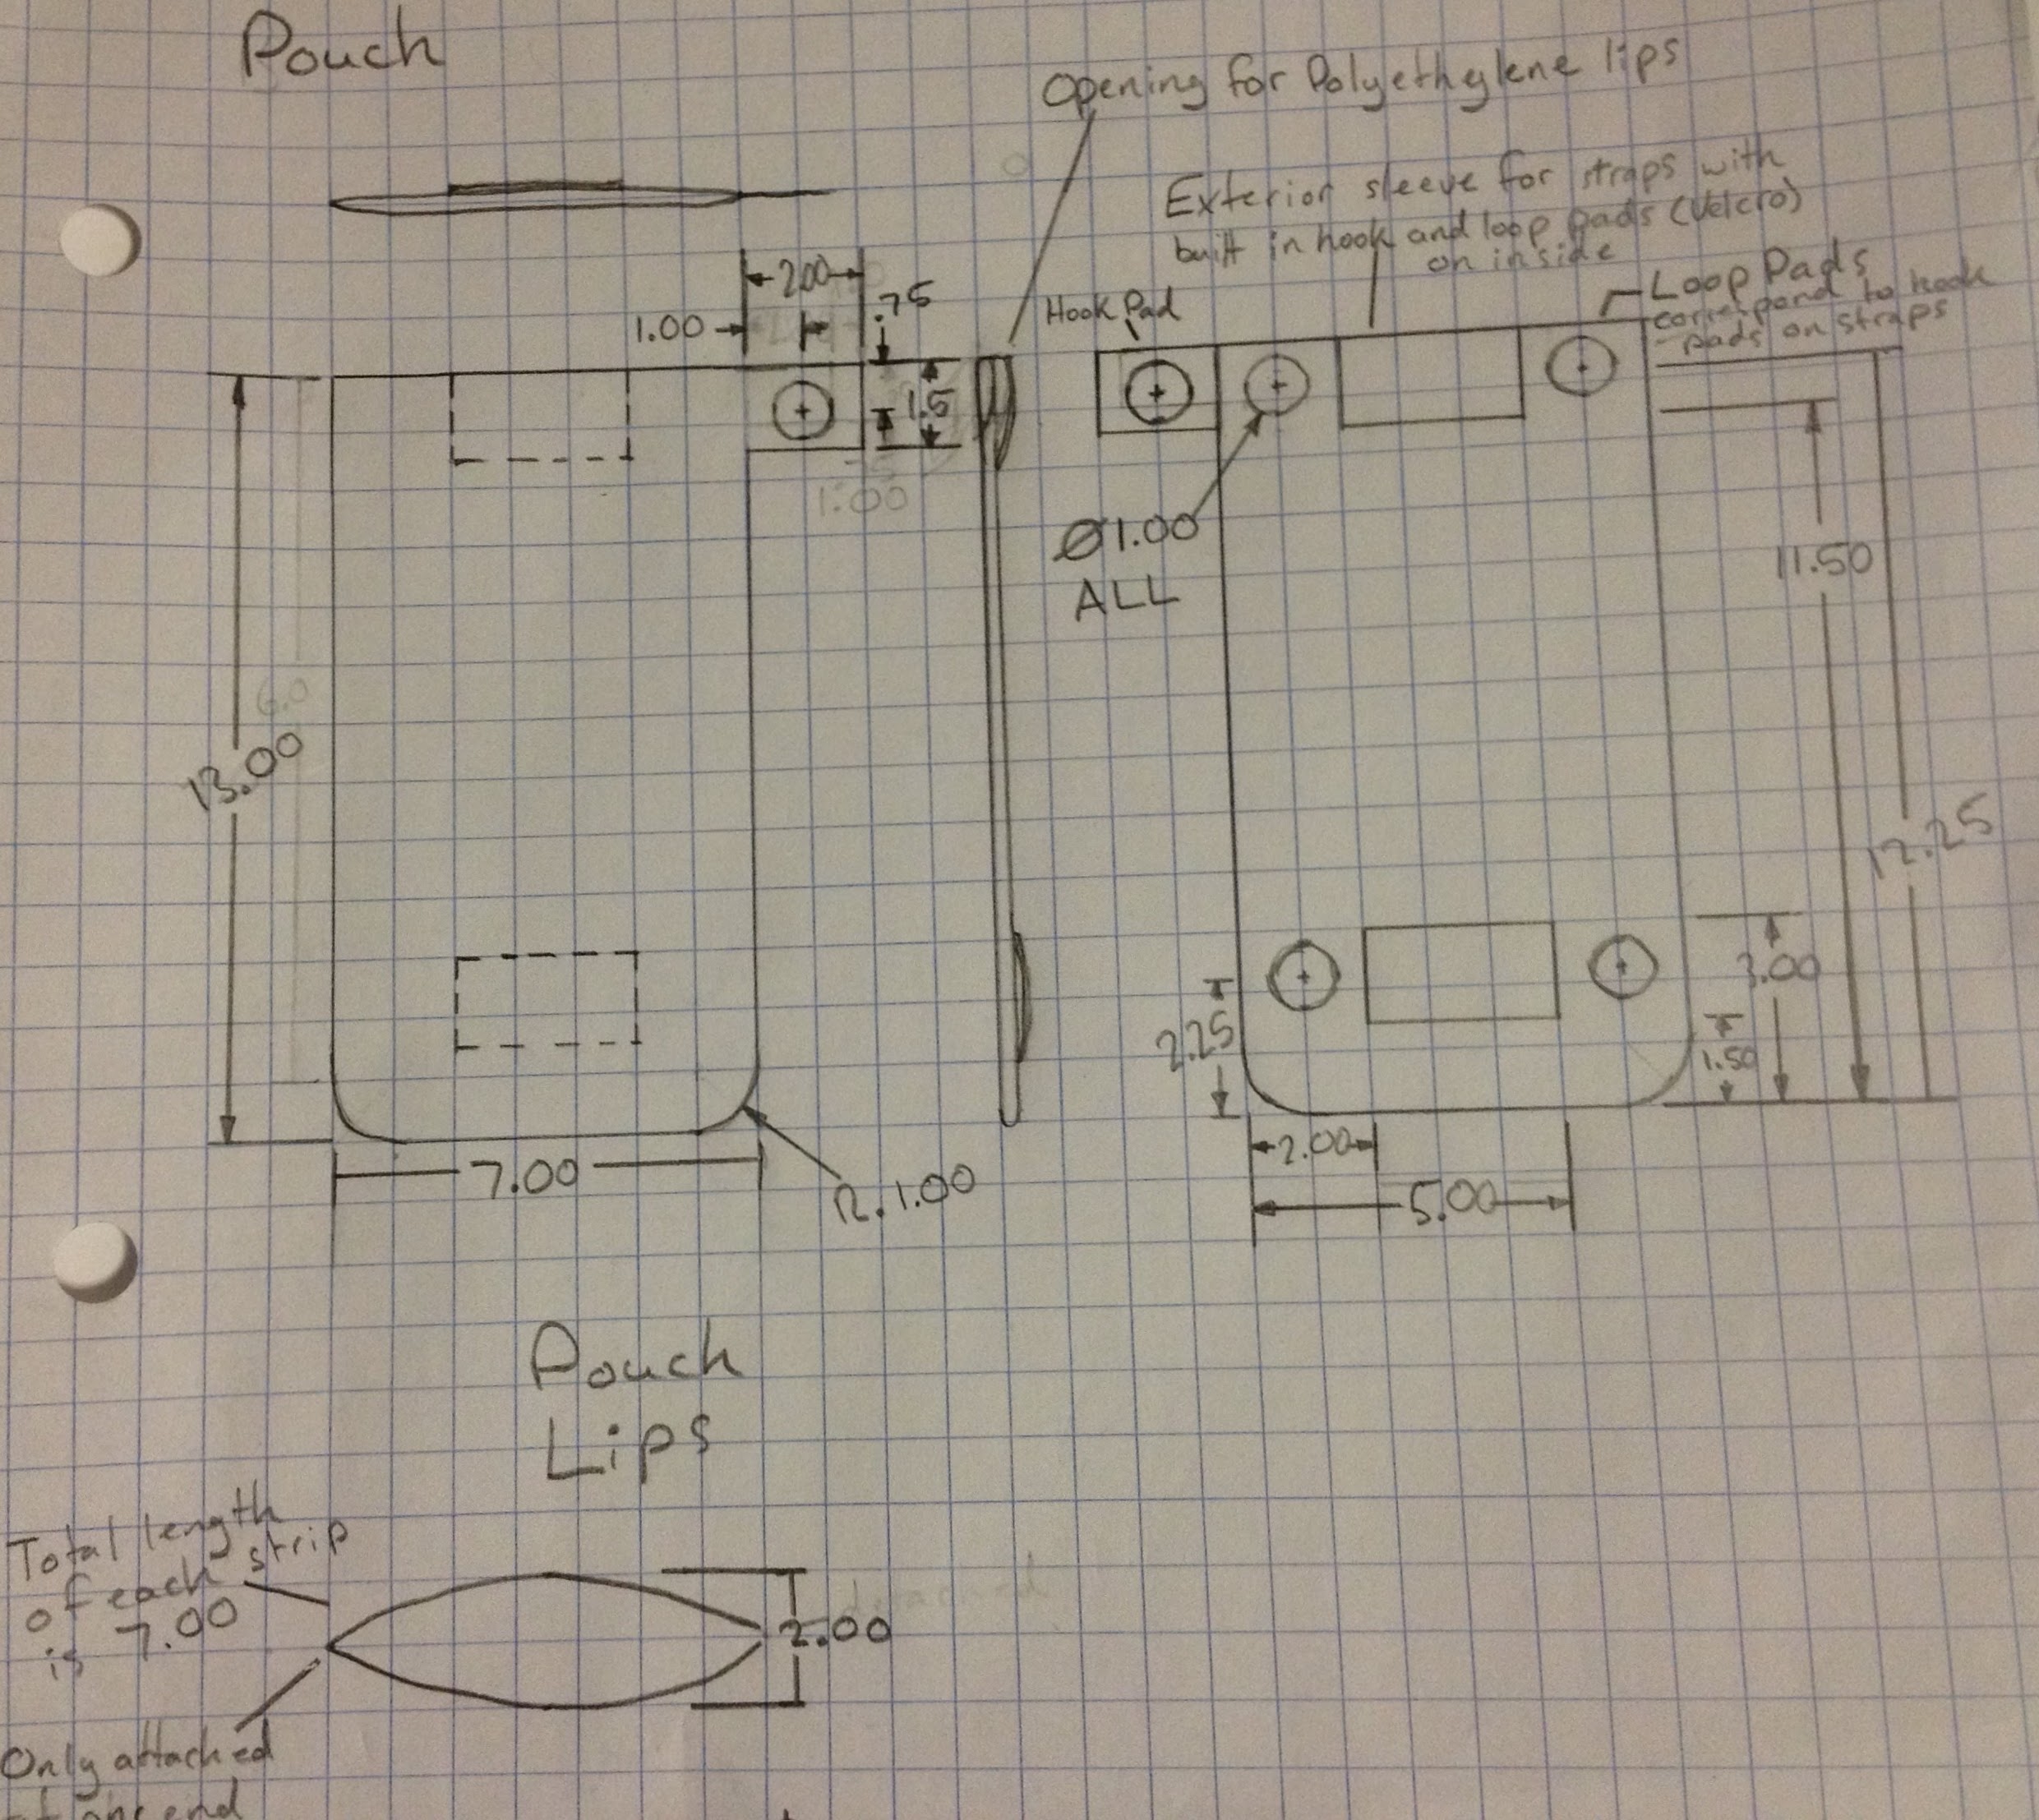 Pouch
Opening for Polyethylene lips
Exterior sleeve for straps with
built in hook and loop pads (Velcro)
on inside
Loop Pads
correspond to hook
pads on straps
Hook Pad
2.00
.75
1.00
1.5
1.00
Ø1.00
ALL
11.50
6.0
13.00
12.25
3.00
2.25
1.50
7.00
R. 1.00
2.00
5.00
Pouch
Lips
Total length
of each strip
is 7.00
2.00
Only attached
at one end